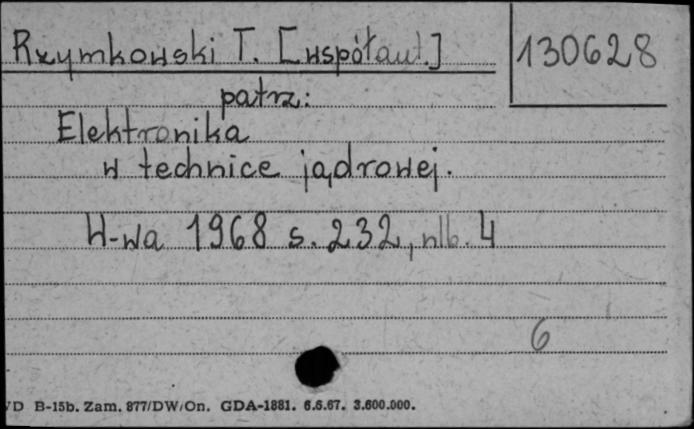 Rzymkowski T. [współaut.]
130628
patrz:
Elektronika
w technice jądrowej.
W-wa 1968 s. 232, nlb. 4
6
D B-15b. Zam. 877/DW/On. GDA-1881. 6.6.67. 3.600.000.